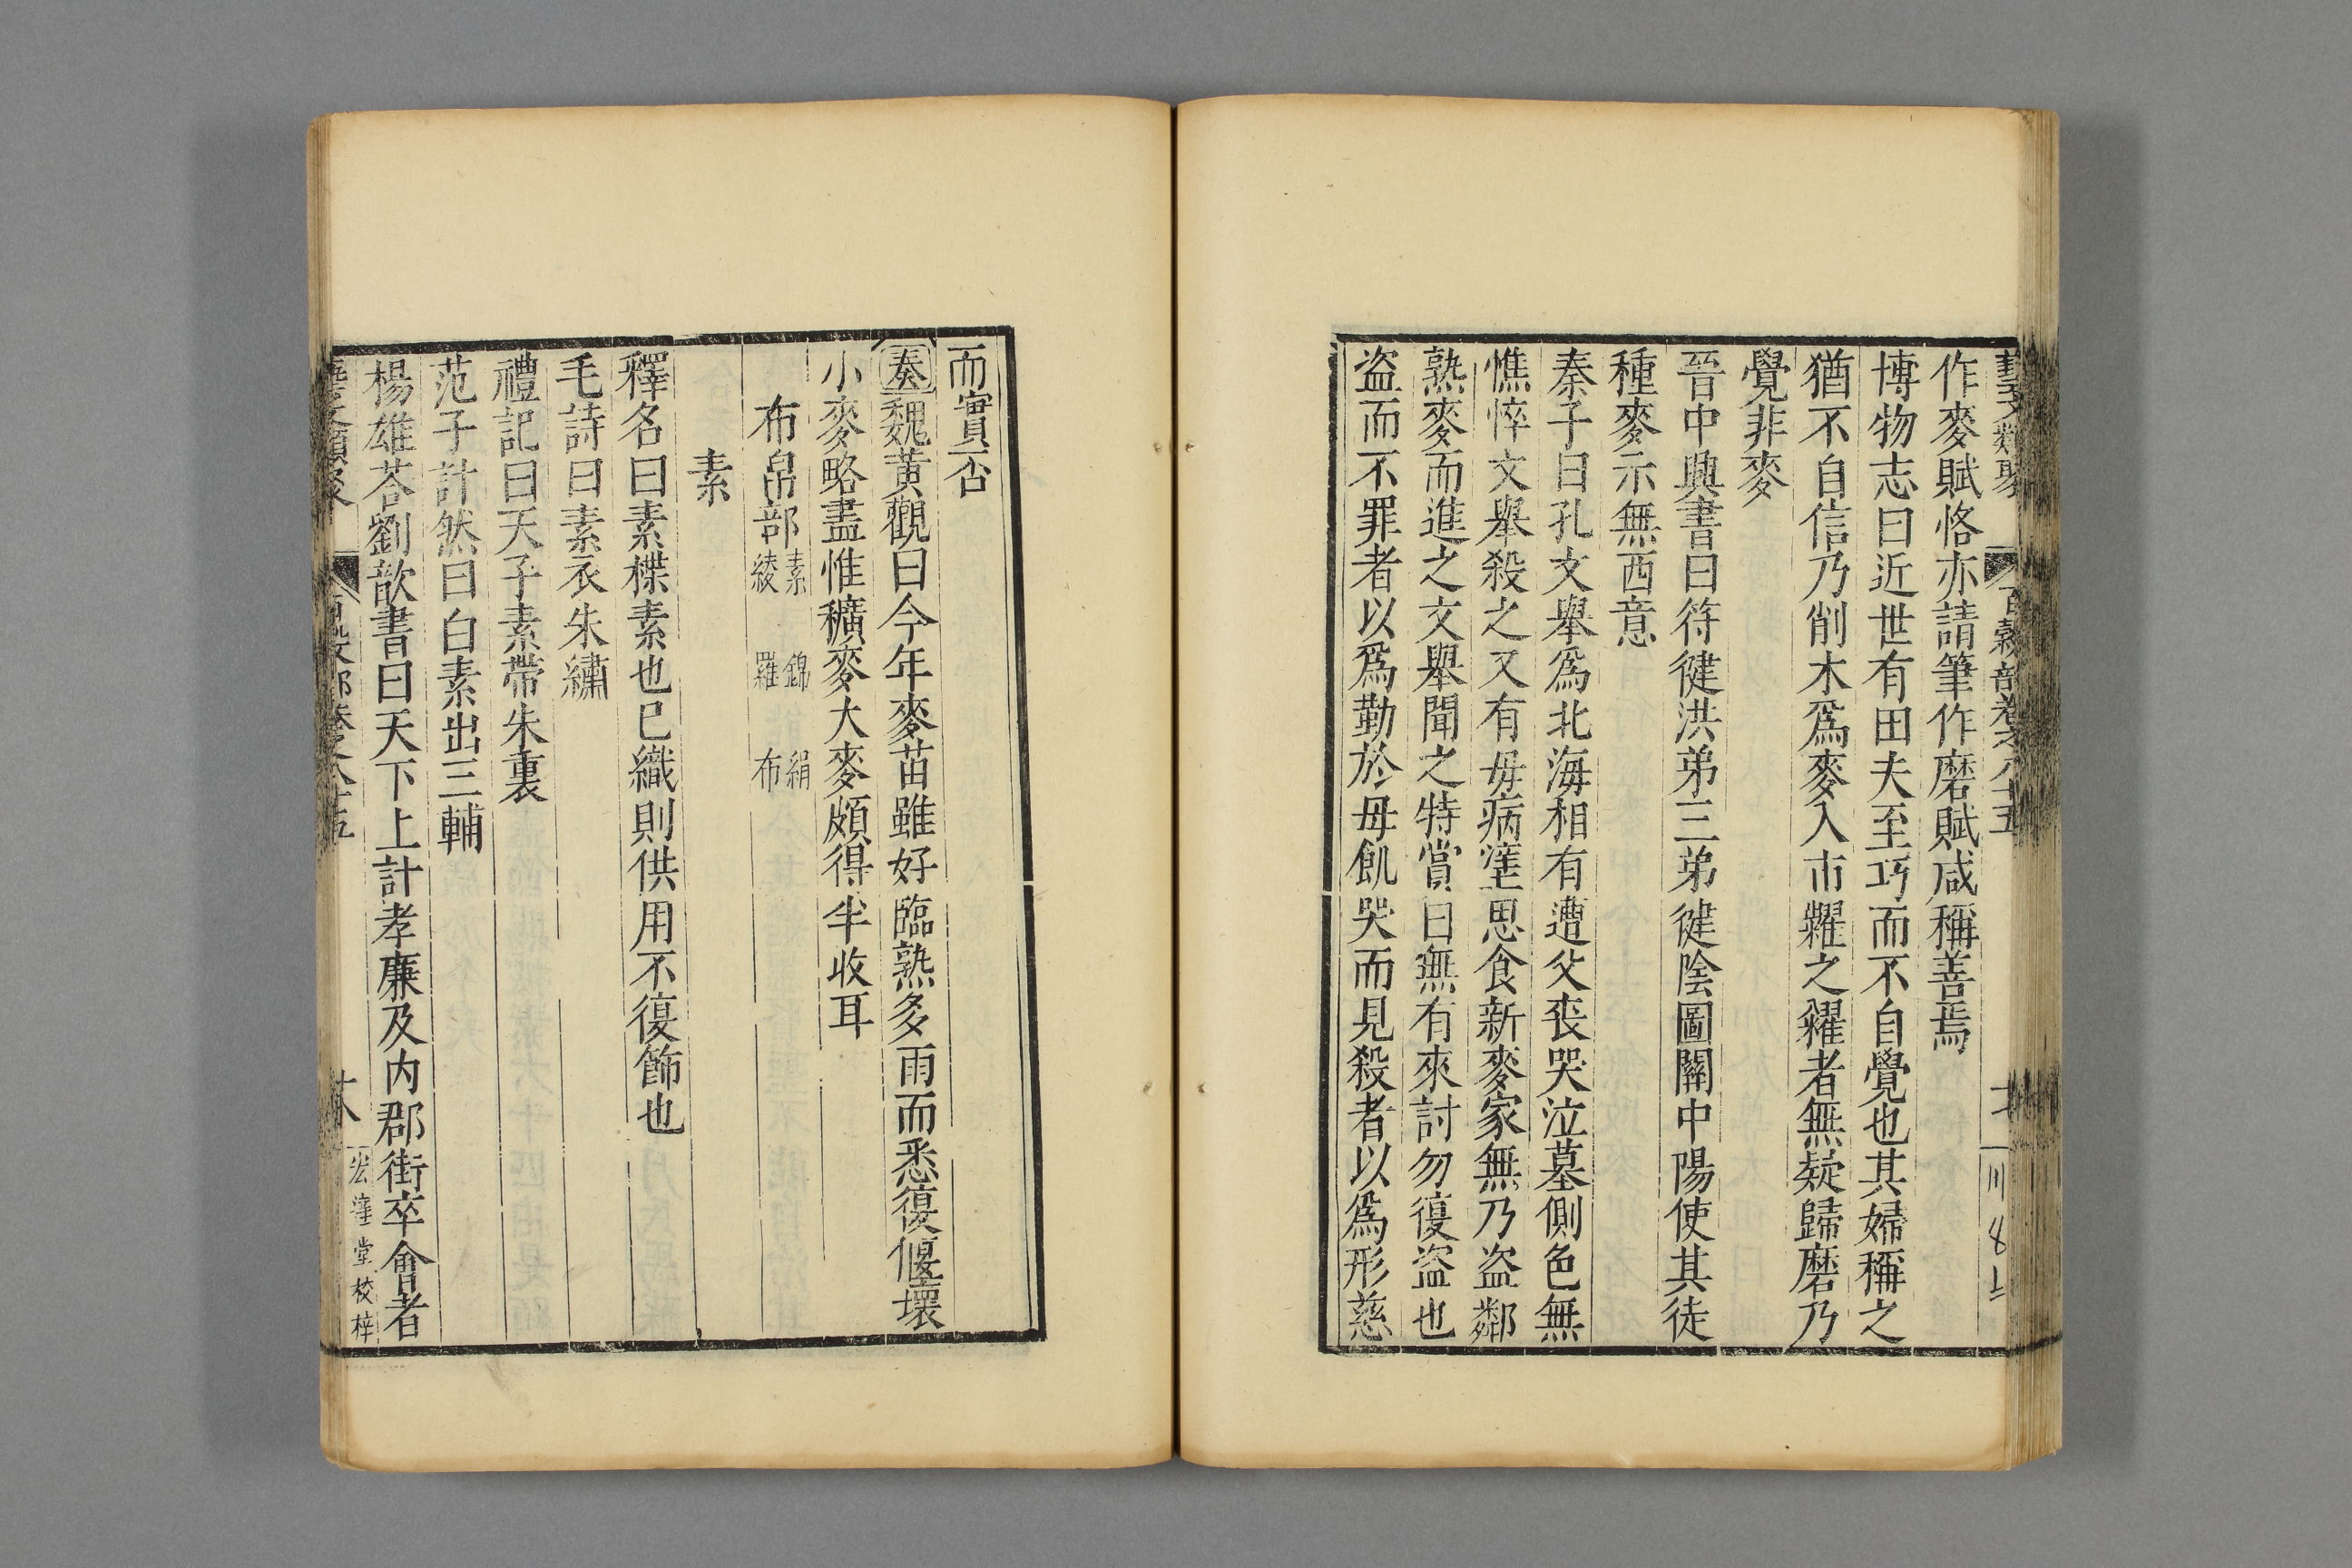 藝文類聚 百穀部卷之八十五
作麥賦恪亦請筆作磨賦咸稱善焉
博物志曰近世有田夫至巧而不自覺也其婦稱之
猶不自信乃削木爲麥入市糶之糴者無疑歸磨乃
覺非麥
晉中興書曰符健洪弟三弟健陰圖關中陽使其徒
種麥示無西意
秦子曰孔文舉爲北海相有遭父喪哭泣墓側色無
憔悴文舉殺之又有母病瘥思食新麥家無乃盜鄰
熟麥而進之文舉聞之特賞曰無有來討勿復盜也
盜而不罪者以爲勤於母飢哭而見殺者以爲形慈
而實否
奏魏黃觀曰今年麥苗雖好臨熟多雨而悉復偃壞
小麥略盡惟穬麥大麥頗得半收耳
布帛部 素 錦 絹 綾 羅 布
素
釋名曰素樸素也已織則供用不復飾也
毛詩曰素衣朱繡
禮記曰天子素帶朱裏
范子計然曰白素出三輔
楊雄荅劉歆書曰天下上計孝廉及内郡街卒會者
藝文類聚 百穀部卷之八十五 宏達堂校梓